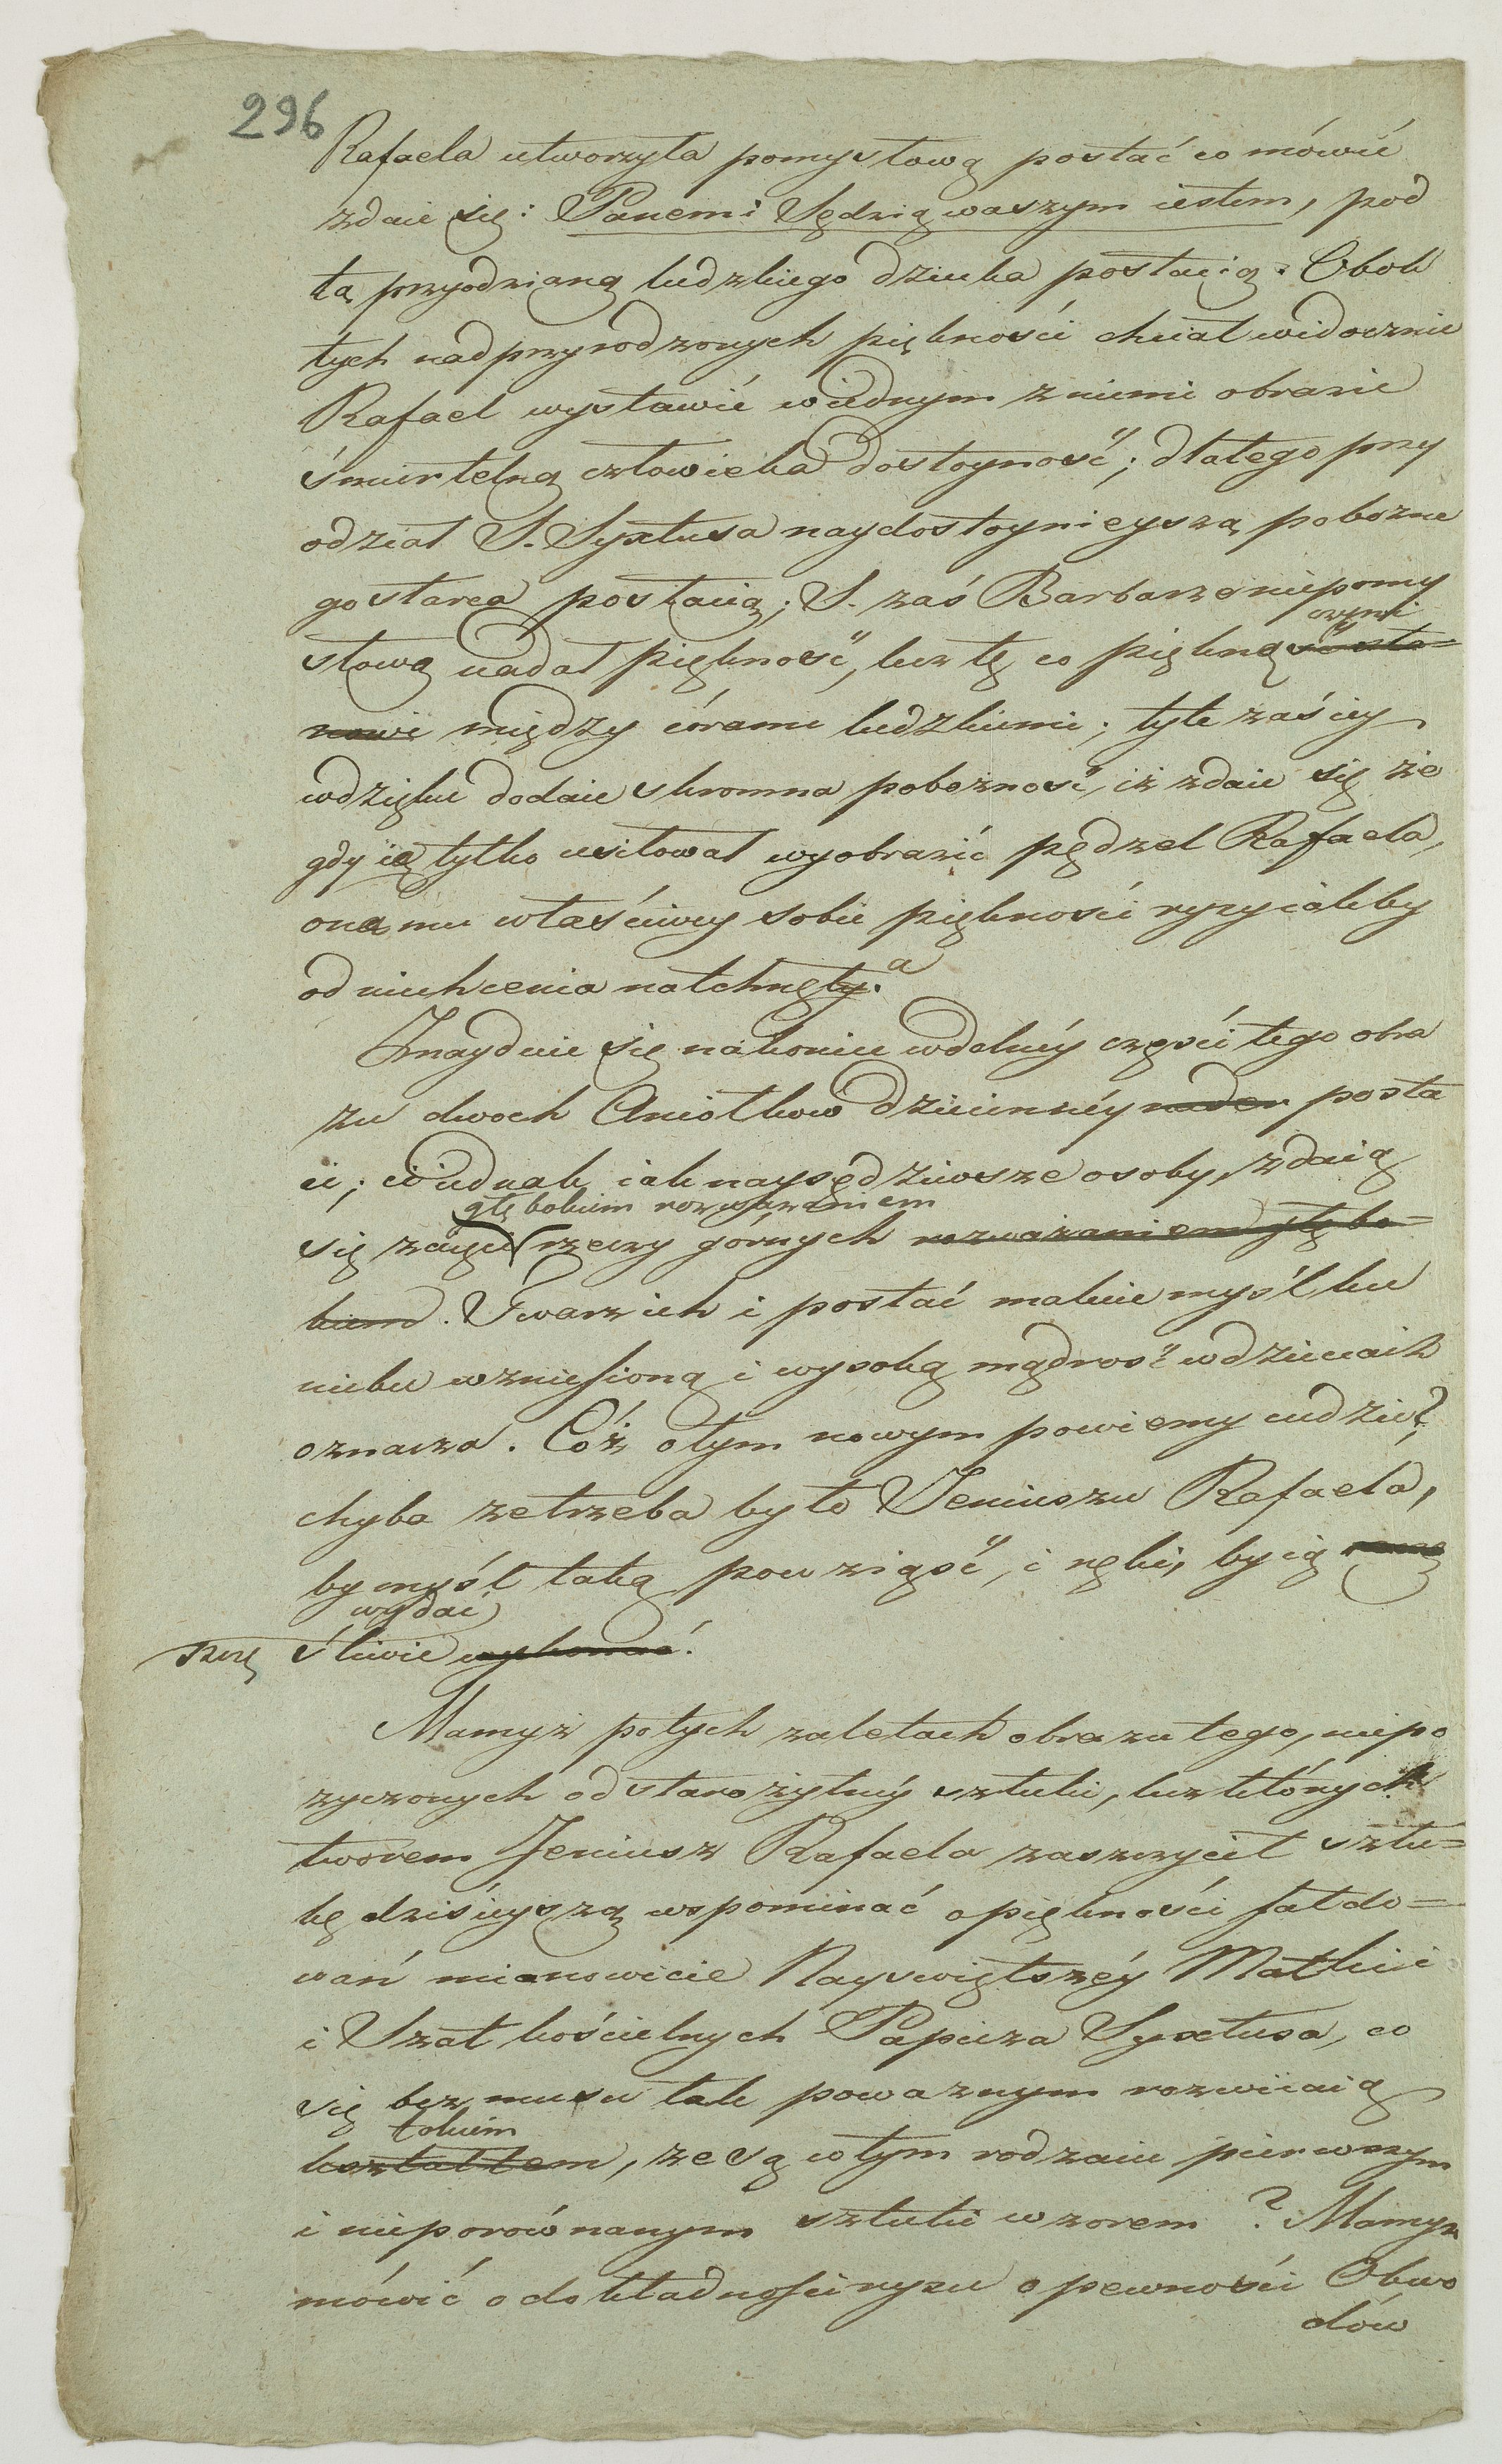 296
Rafaela utworzyła pomysłową postać co mówić
zdaie się: Panem i Sędzią waszym iestem, pod
tą przyodzianą ludzkiego dziecka postacią. Obok
tych nadprzyrodzonych piękności chciał widocznie
Rafael wystawić w iednym z niemi obrazie
śmiertelną człowieka dostoyność; dlatego przy
odział S. Syxtusa naydostoynieyszą pobożne
go starca postacią; S. zaś Barbarze niepomy
czyni
słową nadał piękność, lecz tę co piękną sta=
nowi między córami ludzkiemi; tyle zaś iey
wdzięku dodaie skromna pobożność, iż zdaie się że
gdy ią tylko usiłował wyobrazić pędzel Rafaela,
ona mu właściwey sobie piękności rysy iakby
od niechcenia natchnęły. a
Znayduie się nakoniec w dolnéy części tego obra
zu dwoch Aniołkow dziecinnéy posta
ci; ci iednak iak naysędziwsze osoby, zdaią
głębokiem rozważaniem
się zaięci rzeczy górnych rozważaniem głębo=
kiem. Twarz ich i postać maluie myśl ku
niebu wzniesioną i wysoką mądrość w dzieciach
oznacza. Cóż o tym nowym powiemy cudzie?
chyba ze trzeba było Jeniuszu Rafaela,
by myśl taką powziąść, i ręki, by ią
wydać
szczę śliwie wykonać.
Mamyż po tych zaletach obrazu tego, niepo
zyczonych od starożytnéy sztuki, lecz których
tworem Jeniusz Rafaela zaszczycił sztu=
kę dzisieyszą wspominać o piękności fałdo=
wań mianowicie Nayświętszéy Matki i
i Szat kościelnych Papieża Syxtusa, co
się bez musu tak poważnym rozwiiaią
tokiem
kształtem, że są w tym rodzaiu pierwszym
i nieporównanym sztuki wzorem? Mamyż
mówić o dokładności rysu o pewności Obwo
dów